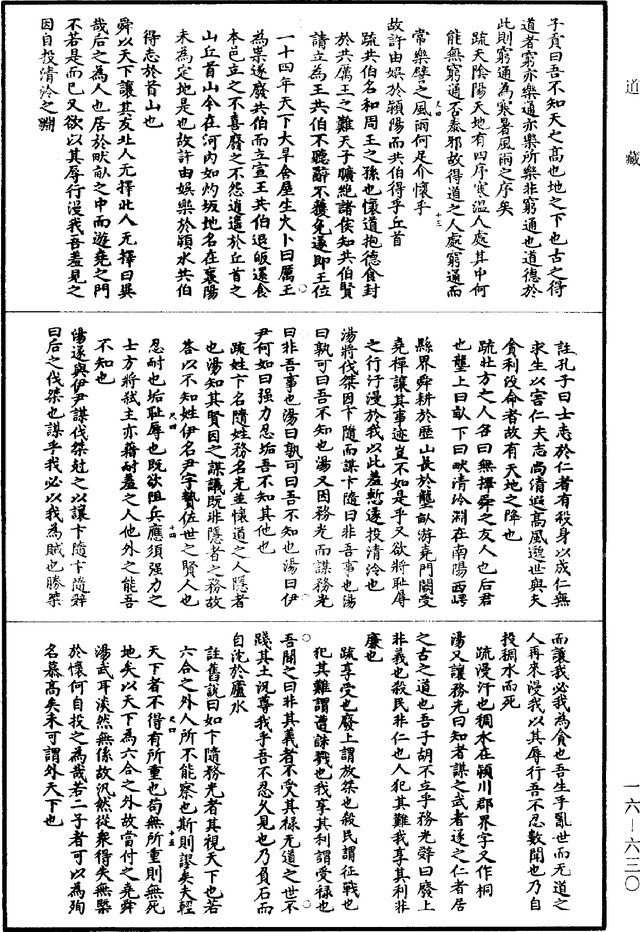 道藏
子貢曰吾不知天之高也地之下也古之得
道者窮亦樂通亦樂所樂非窮通也道德於
此則窮通為寒暑風雨之序矣
疏夫陰陽天地有四序寒溫人處其中何
能無窮通否泰耶故得道之人處窮通而
常樂譬之風雨何足介懷乎
故許由娛於潁陽而共伯得乎丘首
疏共伯名和周王之孫也懷道抱德食封
於共厲王之難天子曠絕諸侯知共伯賢
請立為王共伯不聽辭不獲免遂即王位
一十四年天下大旱舍屋生火卜曰厲王
為祟遂廢共伯而立宣王共伯退皈還食
本邑立之不喜廢之不怨逍遙於丘首之
山丘首山今在河內如灼坂地名在襄陽
未為定地是也故許由娛樂於潁水共伯
得志於首山也
舜以天下讓其友北人无擇北人无擇曰異
哉后之為人也居於畎畝之中而遊堯之門
不若是而已又欲以其辱行漫我吾羞見之
因自投清泠之淵
註孔子曰士志於仁者有殺身以成仁無
求生以害仁夫志尚清遐高風邈世與夫
貪利改命者故有天地之降也
疏北方之人名曰無擇舜之友人也后君
也壟上曰畝下曰畎清泠淵在南陽西崿
縣界舜耕於歷山長於壟畝游堯門闕受
堯禪讓其事迹豈不如是乎又欲將恥辱
之行汙漫於我以此羞慙遂投清泠也
湯將伐桀因卞隨而謀卞隨曰非吾事也湯
曰孰可曰吾不知也湯又因務光而謀務光
曰非吾事也湯曰孰可曰吾不知也湯曰伊
尹何如曰强力忍垢吾不知其他也
疏姓卞名隨姓務名光並懷道之人隱者
也湯知其賢因之謀議既非隱者之務故
荅以不知姓伊名尹字贄佐世之賢人也
忍耐也垢恥辱也既欲阻兵應須强力之
士方將弒主亦藉耐羞之人他外之能吾
不知也
湯遂與伊尹謀伐桀尅之以讓卞隨卞隨辭
曰后之伐桀也謀乎我必以我為賊也勝桀
而讓我必我為貪也吾生乎亂世而无道之
人再來漫我以其辱行吾不忍數聞也乃自
投稠水而死
疏漫汙也稠水在潁川郡界字又作桐
湯又讓務光曰知者謀之武者遂之仁者居
之古之道也吾子胡不立乎務光辭曰廢上
非義也殺民非仁也人犯其難我享其利非
廉也
疏享受也廢上謂放桀也殺民謂征戰也
犯其難謂遭誅戮也我享其利謂受祿也
吾聞之曰非其義者不受其祿无道之世不
踐其土況尊我乎吾不忍久見也乃負石而
自沈於廬水
註舊說曰如卞隨務光者其視天下也若
六合之外人所不能察也斯則謬矣夫輕
天下者不得有所重也苟無所重則無死
地矣以天下為六合之外故當付之堯舜
湯武耳淡然無係故汎然從衆得失無槩
於懷何自投之為哉若二子者可以為殉
名慕高矣未可謂外天下也
尺四
十三
尺四
十四
尺四
十五
一六—六三〇